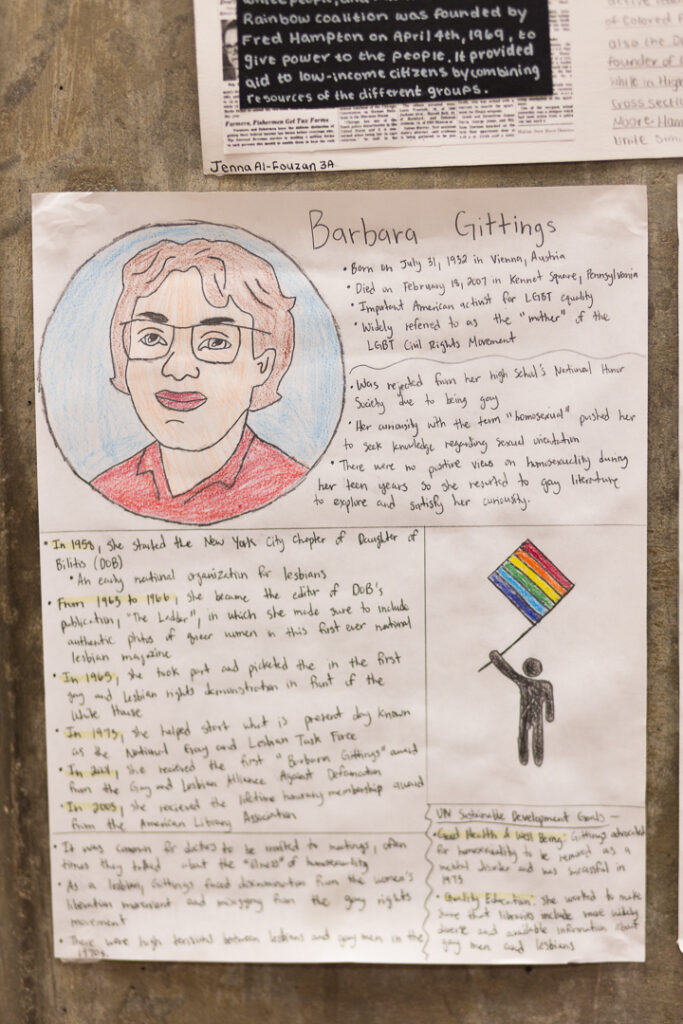 white people, and
Rainbow coalition was founded by
Fred Hampton on April 4th, 1969, to
give power to the people. It provided
aid to low-income citizens by combining
resources of the different groups.
Farmers, Fishermen Get Tax Forms
of Colored
also the
founder of
while in High
Cross section
Moore-Ham
Unite
Jenna Al-Fouzan 3A
Barbara Gittings
• Born on July 31, 1932 in Vienna, Austria
• Died on February 18, 2007 in Kennet Square, Pennsylvania
• Important American activist for LGBT equality
• Widely referred to as the "mother" of the
LGBT Civil Rights Movement
• Was rejected from her high school's National Honor
Society due to being gay
• Her curiosity with the term "homosexual" pushed her
to seek knowledge regarding sexual orientation
• There were no positive views on homosexuality during
her teen years so she resorted to gay literature
to explore and satisfy her curiosity.
• In 1958, she started the New York City Chapter of Daughter of
Bilitis (DOB)
• An early national organization for lesbians
• From 1963 to 1966, she became the editor of DOB's
publication, "The Ladder", in which she made sure to include
authentic photos of queer women in this first ever national
lesbian magazine
• In 1965, she took part and picketed the in the first
gay and lesbian rights demonstration in front of the
White House
• In 1973, she helped start what is present day known
as the National Gay and Lesbian Task Force
• In 2001, she recieved the first "Barbara Gittings" award
from the Gay and Lesbian Alliance Against Defamation
• In 2003, she recieved the lifetime honorary membership award
from the American Library Association
• It was common for doctors to be invited to meetings, often
times they talked about the "illness" of homosexuality
• As a lesbian, Gittings faced discrimination from the women's
liberation movement and misogyny from the gay rights
movement
• There were high tensions between lesbians and gay men in the
1970s.
UN Sustainable Development Goals —
• Good Health & Well Being: Gittings advocated
for homosexuality to be removed as a
mental disorder and was successful in
1973
• Quality Education: She worked to make
sure that libraries include more widely
diverse and available information about
gay men and lesbians